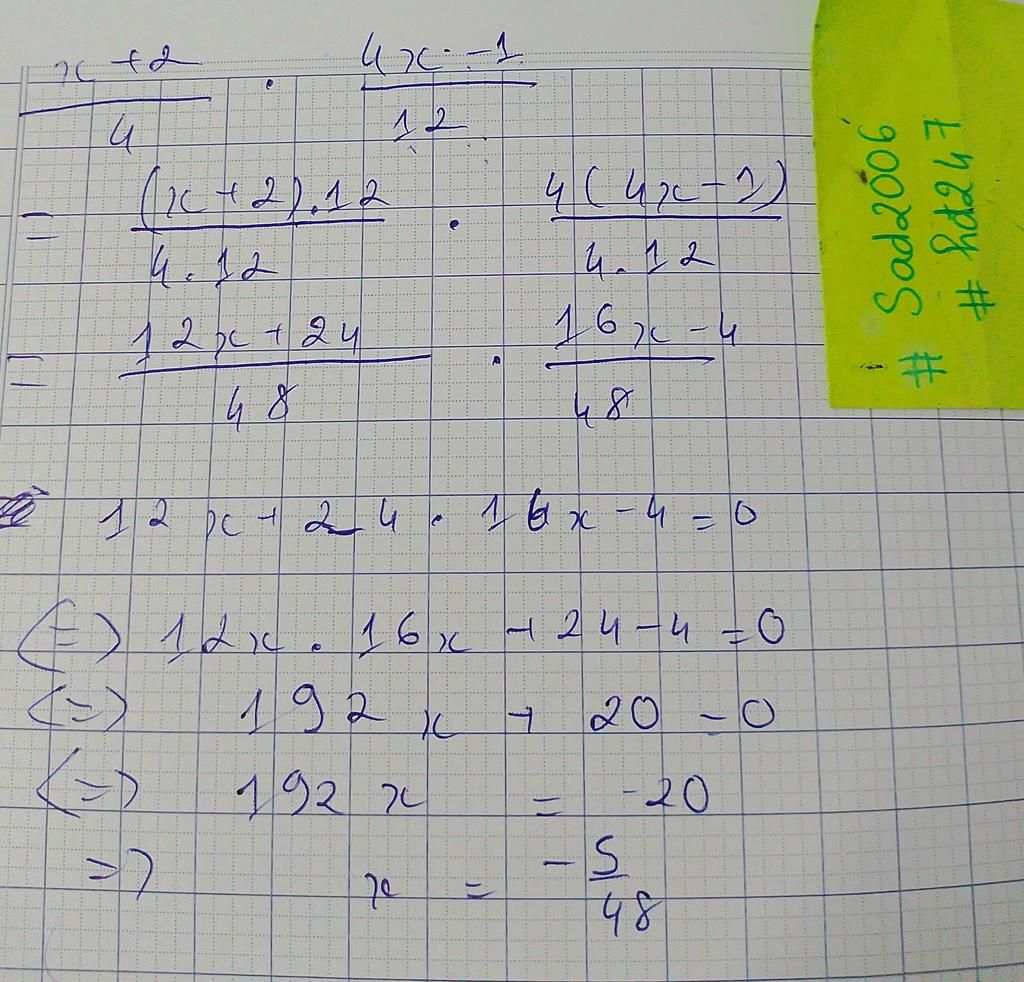 x + 2 / 4 . 4x - 1 / 12
= (x + 2).12 / 4.12 . 4(4x - 1) / 4.12
= 12x + 24 / 48 . 16x - 4 / 48
12x + 24 . 16x - 4 = 0
(=) 12x . 16x + 24 - 4 = 0
(=) 192x + 20 = 0
(=) 192x = -20
=> x = -5 / 48
# Sad2006
# hd247